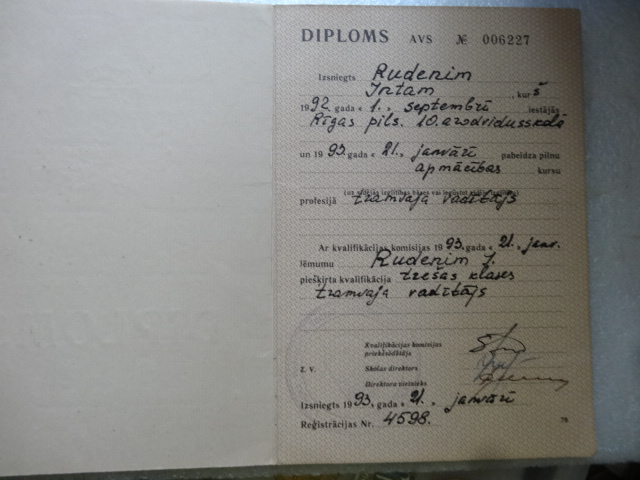 DIPLOMS AVS № 006227
Izsniegts Rudenim
Intam, kurš
1992. gada « 1. » septembrī iestājās
Rīgas pils. 10. arodvidusskolā
un 1993. gada « 21. » janvārī pabeidza pilnu
apmācības kursu
profesijā tramvaja vadītājs
Ar kvalifikācijas komisijas 1993. gada « 21. » janv.
lēmumu Rudenim I.
piešķirta kvalifikācija trešās klases
tramvaja vadītājs
Kvalifikācijas komisijas
priekšsēdētājs
Z. V. Skolas direktors
Direktora vietnieks
Izsniegts 1993. gada « 21. » janvārī
Reģistrācijas Nr. 4598.